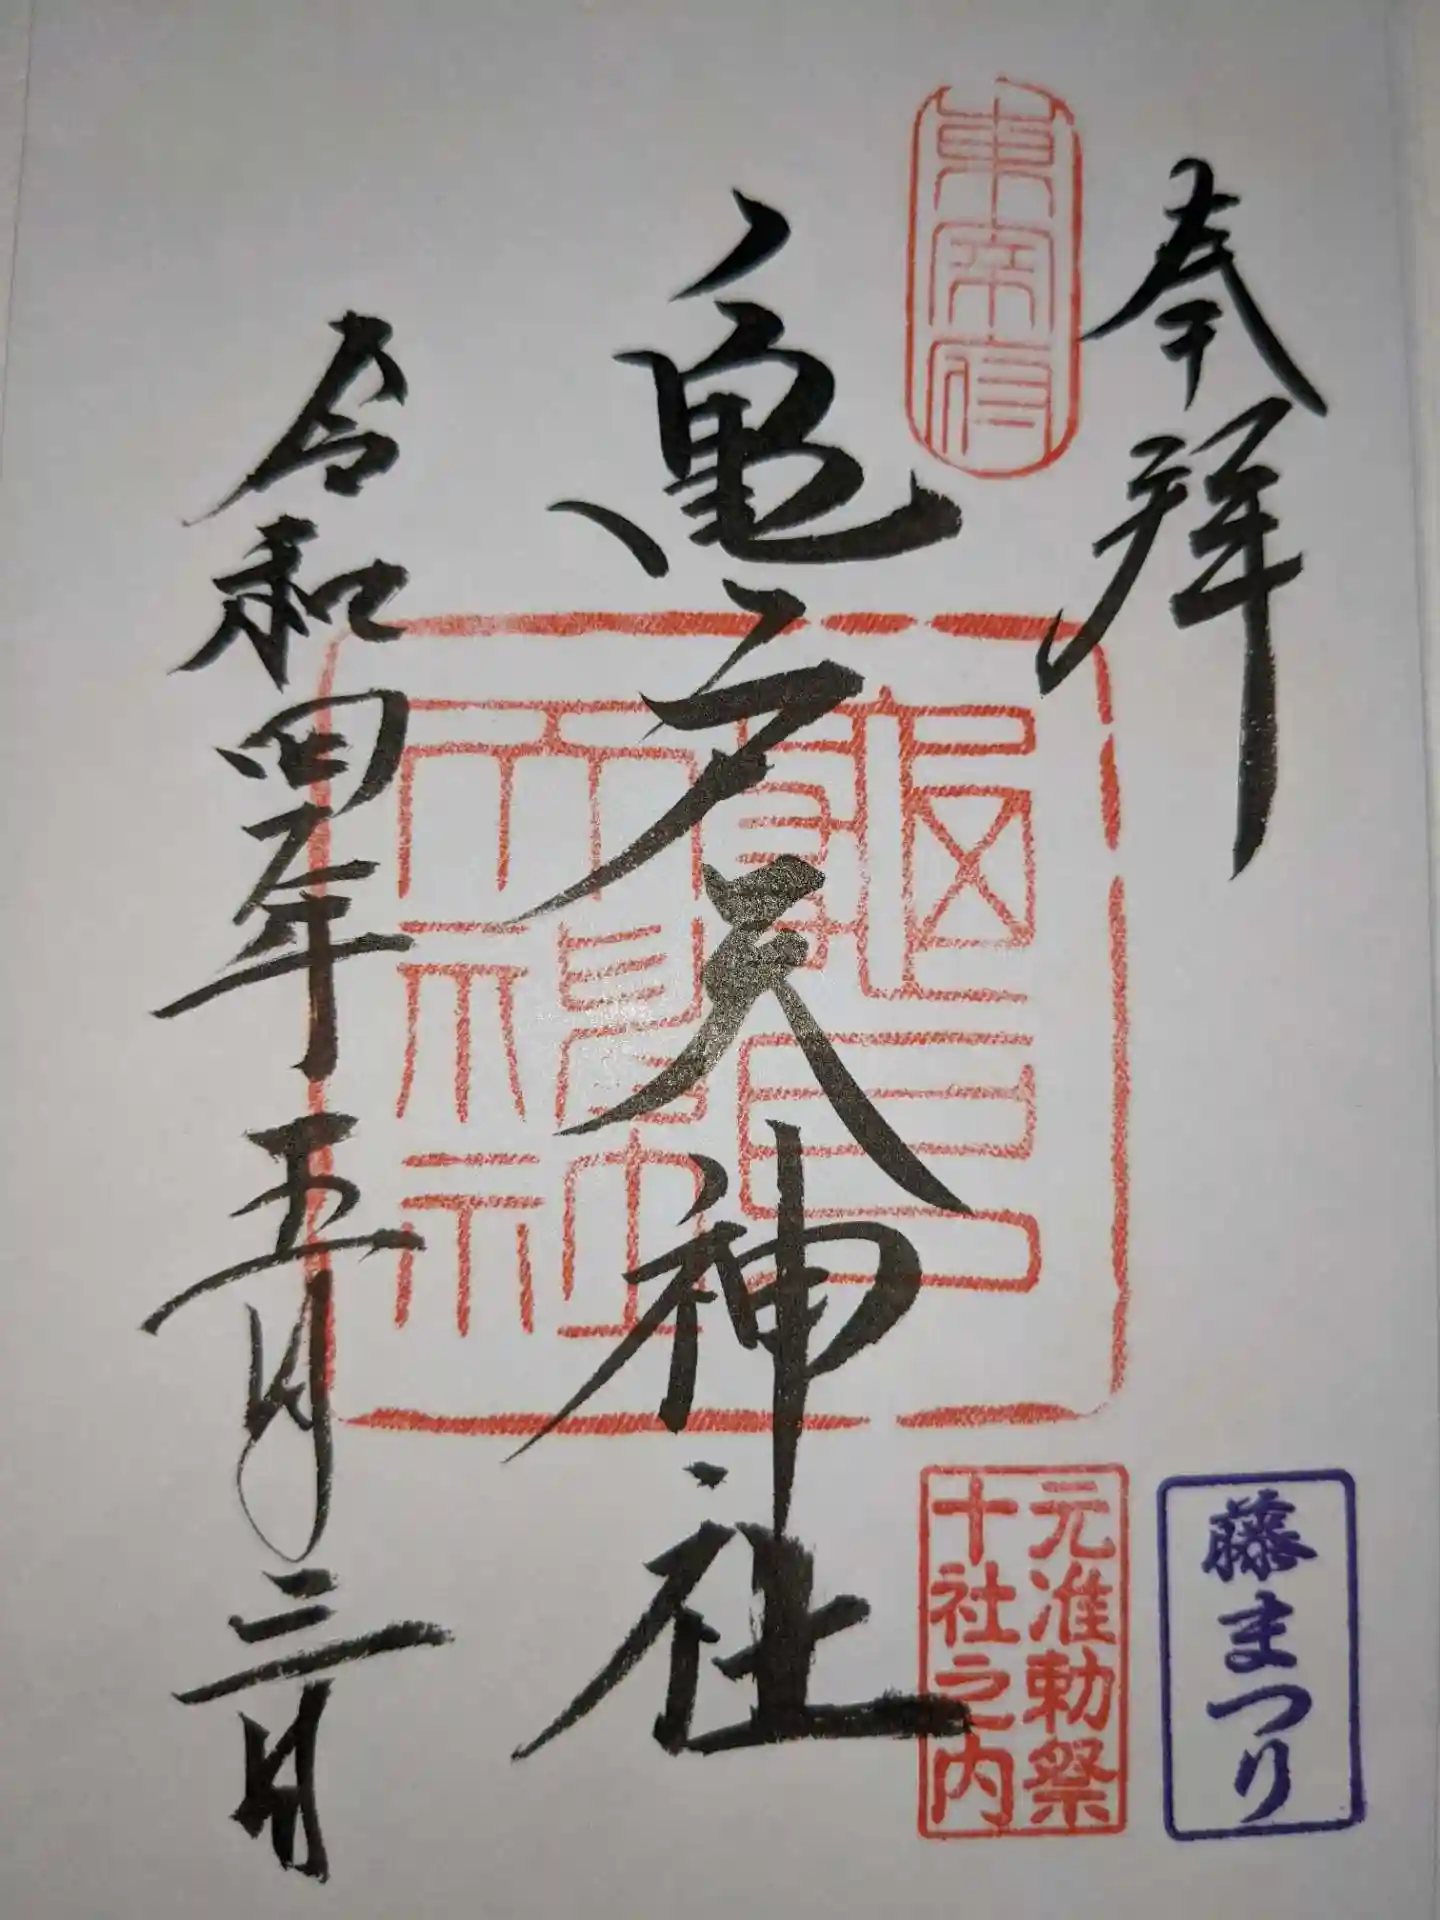 奉拝
東宰府
亀戸天神社
元准勅祭
十社之内
藤まつり
令和四年五月三日